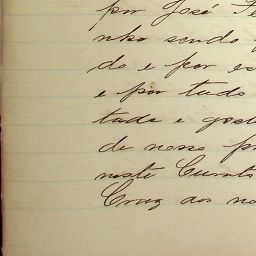 por José Te
nho sendo
do e por es
e por tudo
tude e gost
de nosso pr
neste Curato
Cruz aos no